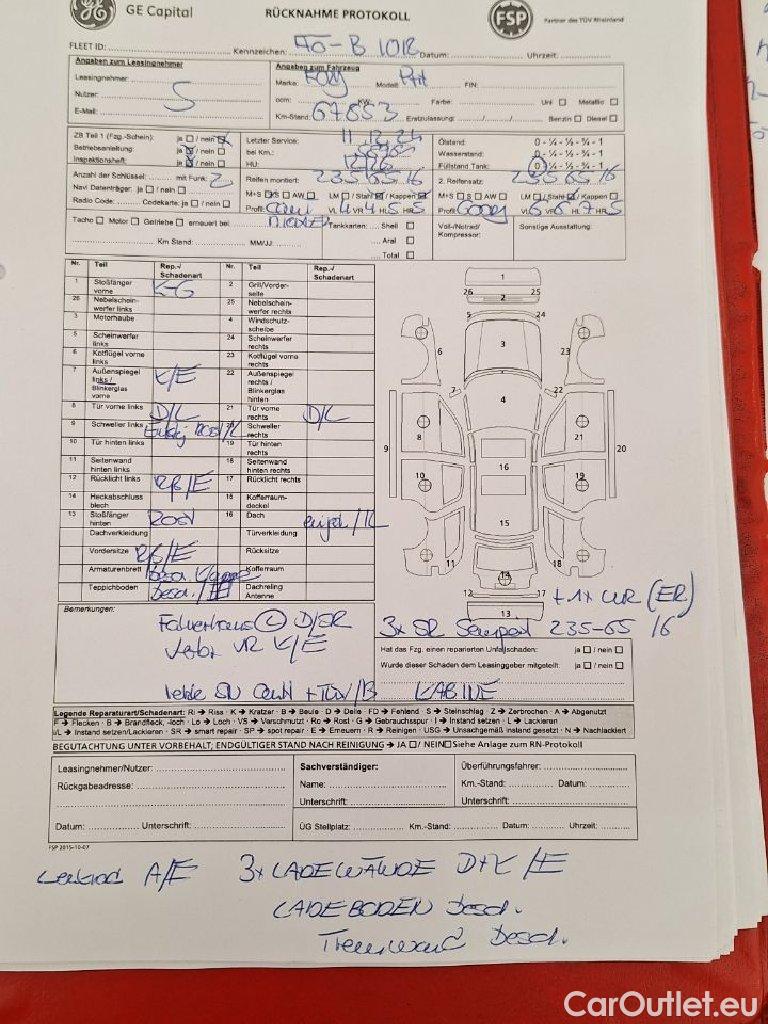 GE GE Capital RÜCKNAHME PROTOKOLL FSP Partner des TÜV Rheinland
FLEET ID: Kennzeichen: B 101R Datum: Uhrzeit:
Angaben zum Leasingnehmer Angaben zum Fahrzeug
Leasingnehmer: Marke: Modell: FIN:
Nutzer: ccm: KW: Farbe: Uni Metallic
E-Mail: Km-Stand: 67.853 Erstzulassung: Benzin Diesel
ZB Teil 1 (Fzg.-Schein): ja / nein Letzter Service: 11.12.24 Ölstand: 0 - ¼ - ½ - ¾ - 1
Betriebsanleitung: ja / nein Bei Km.: Wasserstand: 0 - ¼ - ½ - ¾ - 1
Inspektionsheft: ja / nein HU: Füllstand Tank: 0 - ¼ - ½ - ¾ - 1
Anzahl der Schlüssel: mit Funk: 2 Reifen montiert: 235 65 16 2. Reifensatz: 235 65 16
Navi Datenträger: ja / nein M+S S AW LM / Stahl / Kappen M+S S AW LM / Stahl / Kappen
Radio Code: Codekarte: ja / nein Profil: VL 4 VR 4 HL 5 HR 5 Profil: VL 6 VR 6 HL 7 HR 5
Tacho Motor Getriebe erneuert bei: Tankkarten: Shell Voll-/Notrad/ Sonstige Ausstattung:
Kompressor:
Km Stand: MM/JJ: Aral
Total
Nr. Teil Rep.-/ Schadenart Nr. Teil Rep.-/ Schadenart
1 Stoßfänger vorne K-G 2 Grill/Vorderseite
26 Nebelscheinwerfer links 25 Nebelscheinwerfer rechts
3 Motorhaube 4 Windschutzscheibe
5 Scheinwerfer links 24 Scheinwerfer rechts
6 Kotflügel vorne links 23 Kotflügel vorne rechts
7 Außenspiegel links / Blinkerglas vorne K/E 22 Außenspiegel rechts / Blinkerglas hinten
8 Tür vorne links D/L 21 Tür vorne rechts D/L
9 Schweller links 20 Schweller rechts
10 Tür hinten links 19 Tür hinten rechts
11 Seitenwand hinten links 18 Seitenwand hinten rechts
12 Rücklicht links 17 Rücklicht rechts
14 Heckabschluss blech 15 Kofferraumdeckel
13 Stoßfänger hinten 16 Dach
Dachverkleidung Türverkleidung
Vordersitze Rücksitze
Armaturenbrett Kofferraum
Teppichboden Besch./E Dachreling Antenne
1
26 25
2
5 24
3
6 23
7 22
4
8 21
9 20
10 19
16
15
11 18
14
12 17
13
Bemerkungen:
+ 1x WR (ER)
3x SR 235-65 16
VR K/E
+ TÜV/B KABINE
Hat das Fzg. einen reparierten Unfallschaden: ja / nein
Wurde dieser Schaden dem Leasinggeber mitgeteilt: ja / nein
Legende Reparaturart/Schadenart: Ri → Riss · K → Kratzer · B → Beule · D → Delle · FD → Fehlend · S → Steinschlag · Z → Zerbrochen · A → Abgenutzt
F → Flecken · B → Brandfleck, -loch · Lo → Loch · VS → Verschmutzt · Ro → Rost · G → Gebrauchsspur · I → Instand setzen · L → Lackieren
I/L → Instand setzen/Lackieren · SR → smart repair · SP → spot repair · E → Erneuern · R → Reinigen · USG → Unsachgemäß instand gesetzt · N → Nachlackiert
BEGUTACHTUNG UNTER VORBEHALT; ENDGÜLTIGER STAND NACH REINIGUNG → JA / NEIN Siehe Anlage zum RN-Protokoll
Leasingnehmer/Nutzer: Sachverständiger: Überführungsfahrer:
Rückgabeadresse: Name: Km.-Stand: Datum:
Unterschrift: Unterschrift:
Datum: Unterschrift: ÜG Stellplatz: Km.-Stand: Datum: Uhrzeit:
FSP 2015-10-07
Lenkrad A/E 3x LADEWÄNDE D+K/E
LADEBODEN Besch.
Trennwand Besch.
CarOutlet.eu